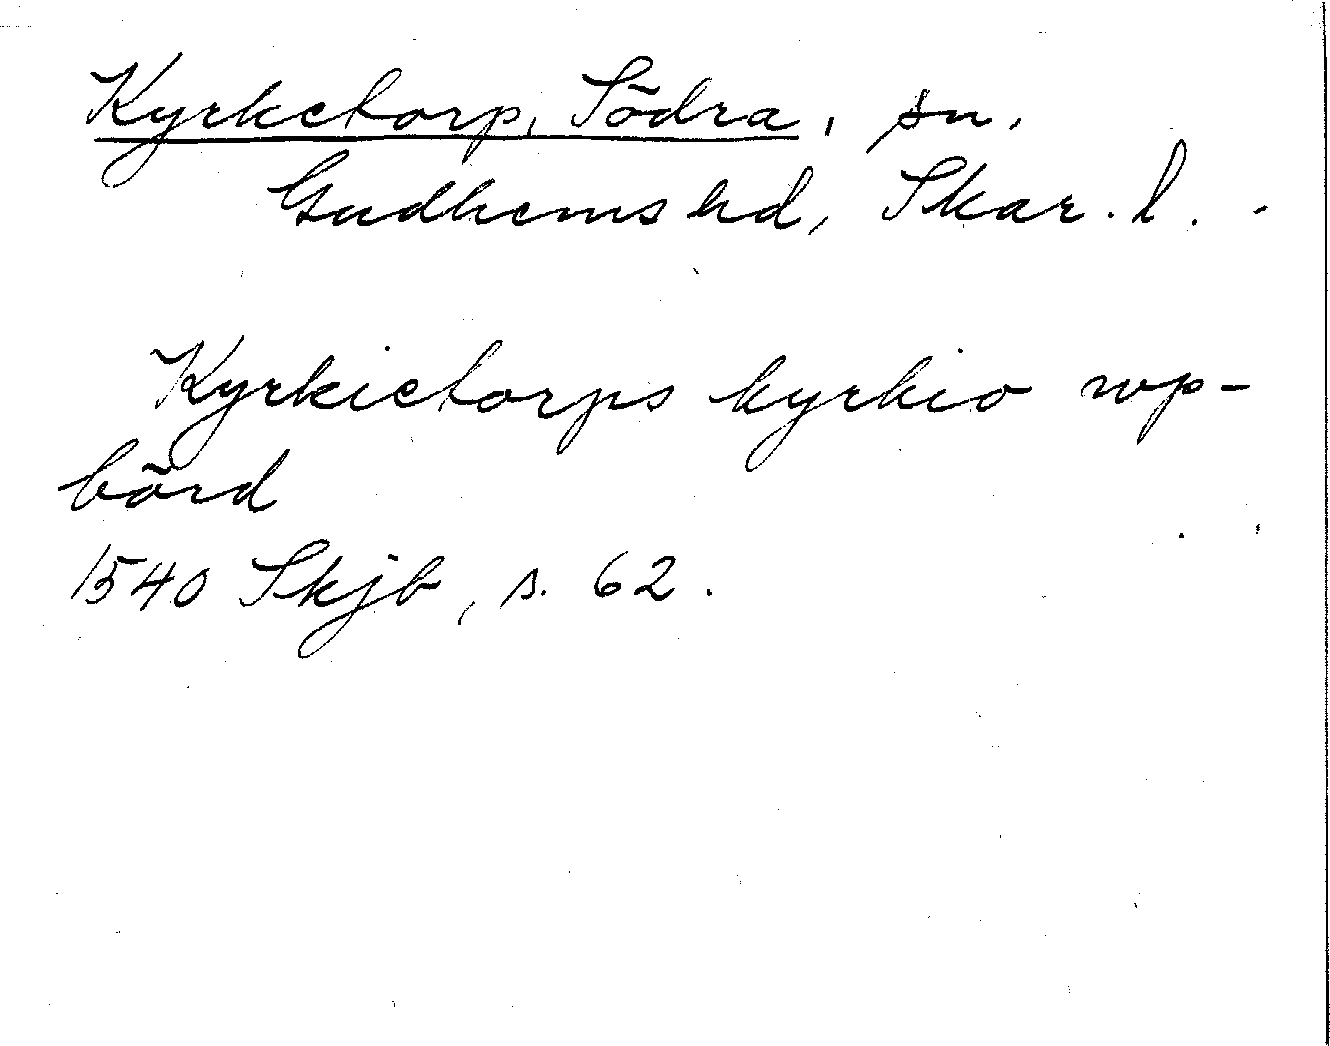 Kyrketorp, Södra, sn.
Gudhems hd, Skar. l.
Kyrkietorps kyrkio wp-
börd
1540 Skjb, s. 62.